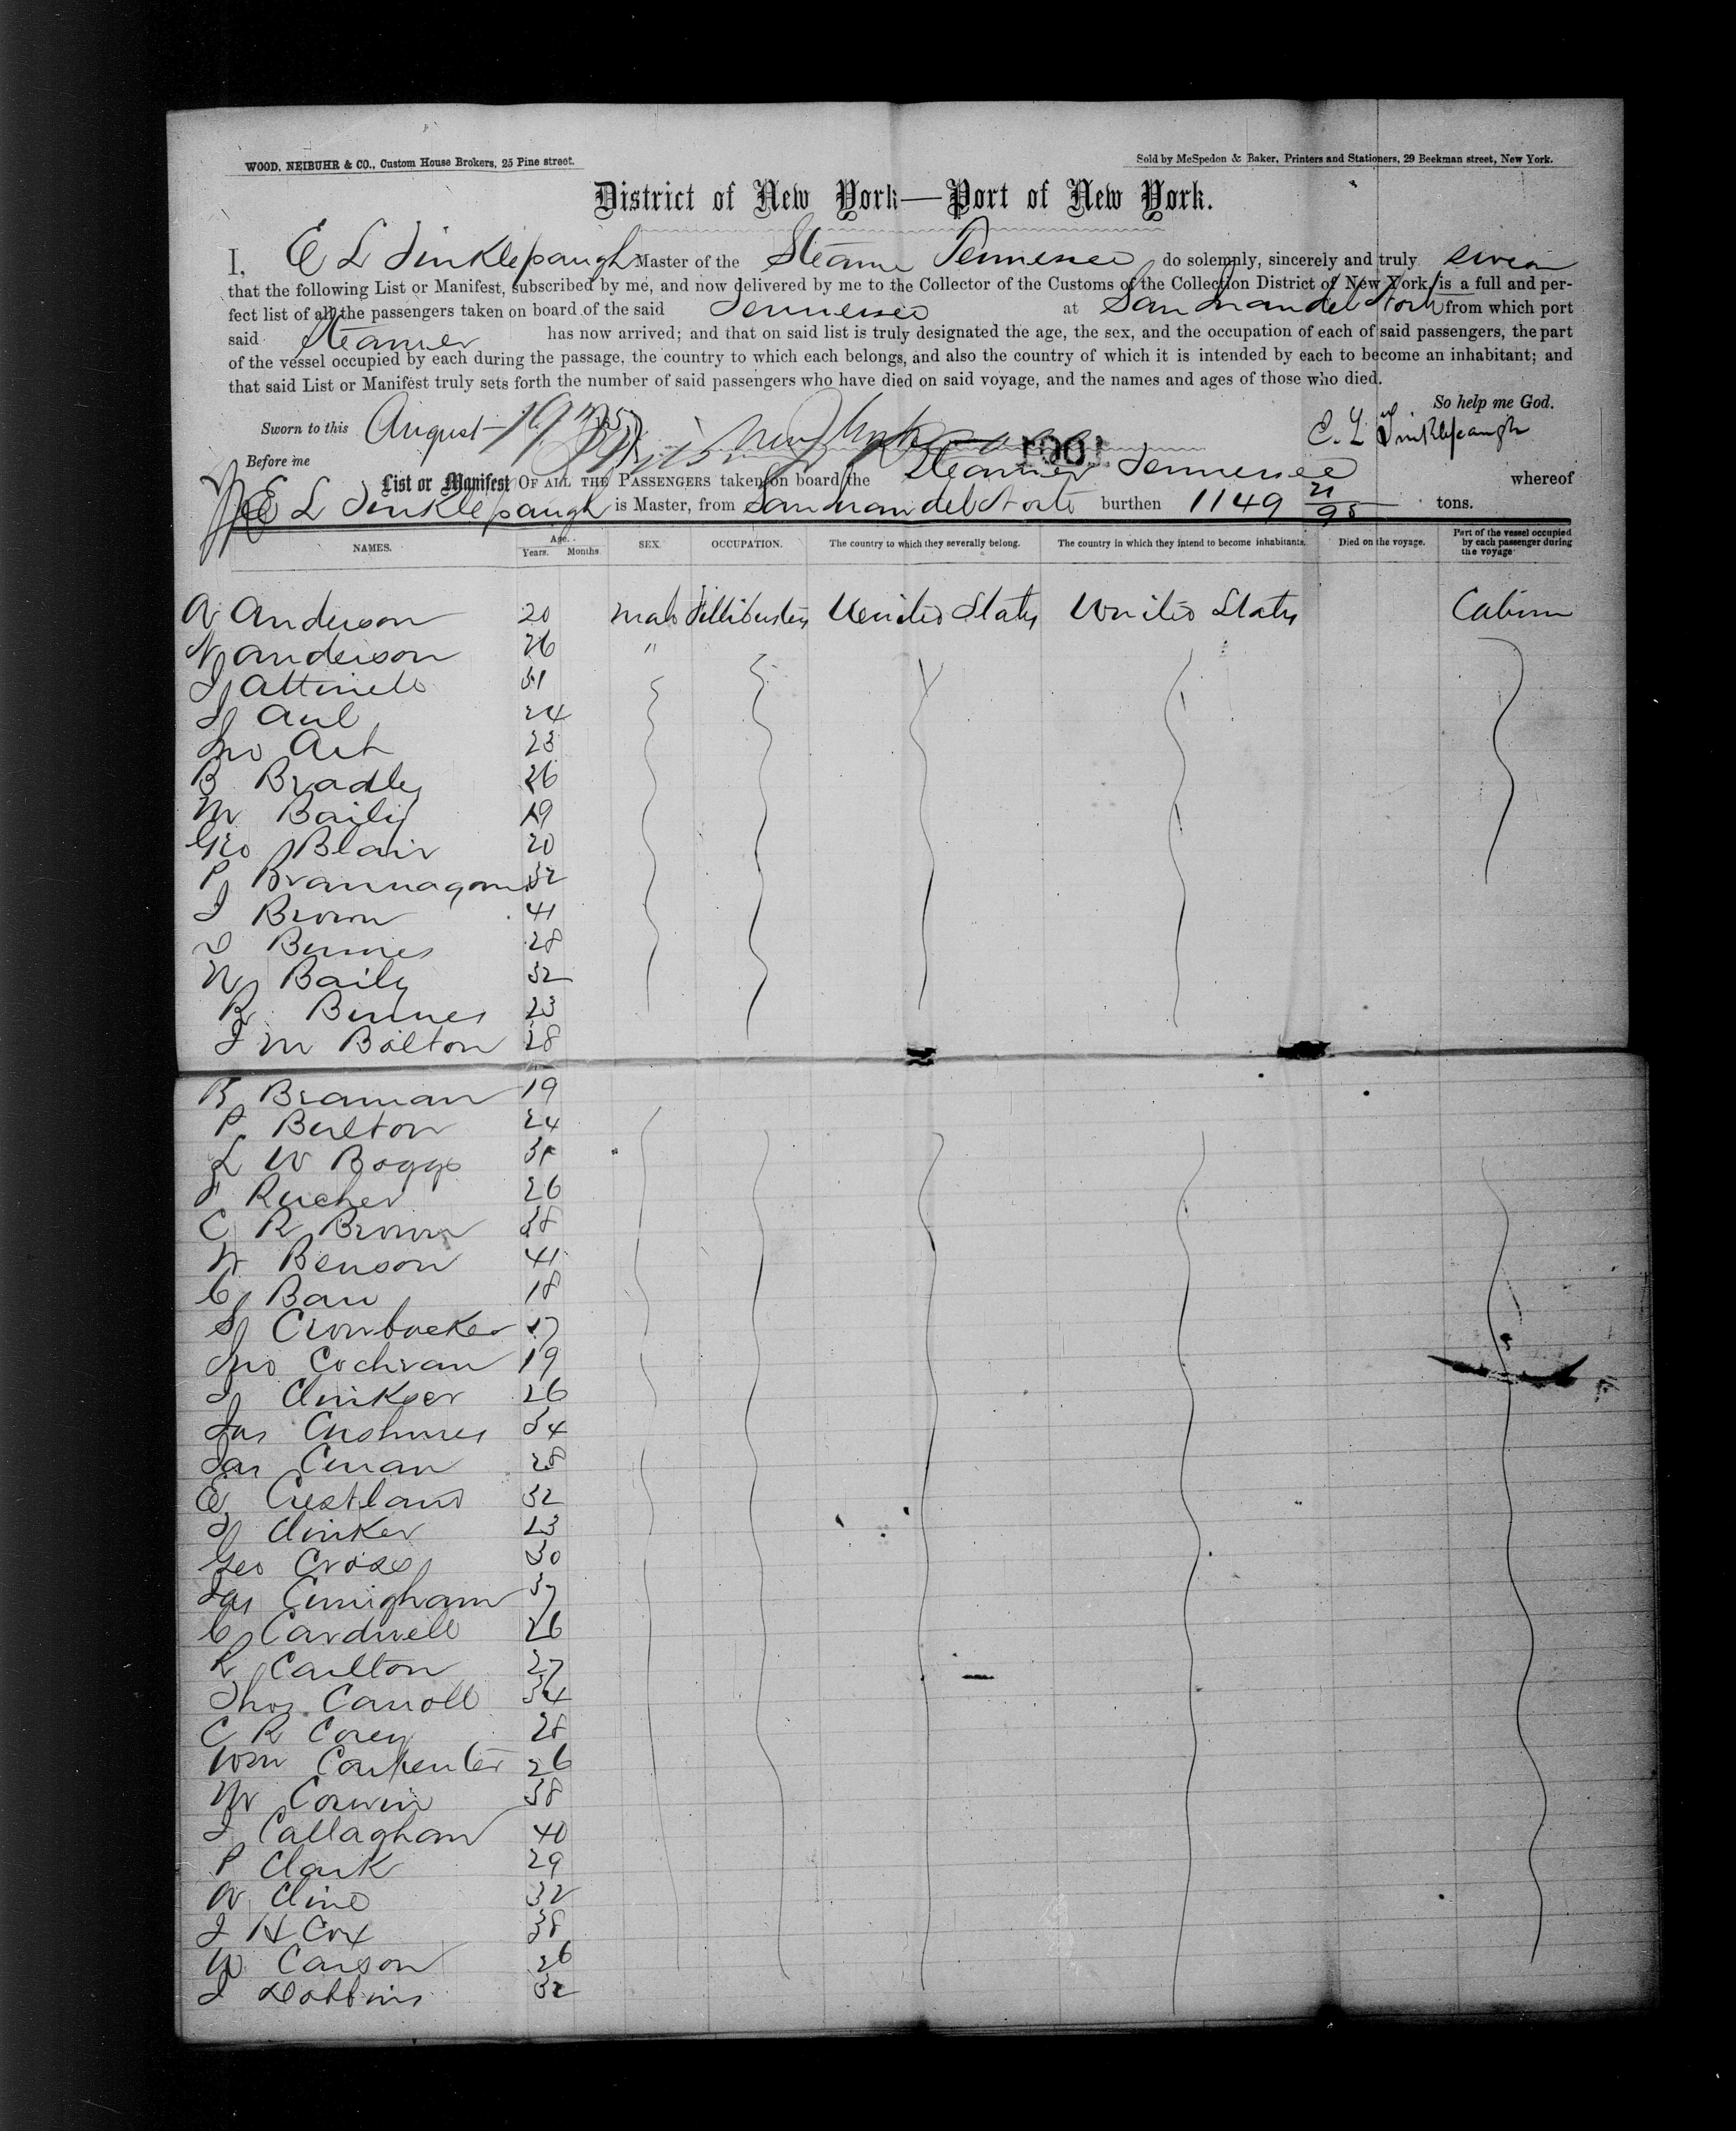 WOOD, NEIBUHR & CO., Custom House Brokers, 25 Pine street.
Sold by McSpedon & Baker, Printers and Stationers, 29 Beekman street, New York.
District of New York—Port of New York.
I, E L Tinklepaugh Master of the Steamer Tennessee do solemnly, sincerely and truly swear
that the following List or Manifest, subscribed by me, and now delivered by me to the Collector of the Customs of the Collection District of New York, is a full and per-
fect list of all the passengers taken on board of the said Tennessee at San Juan del Norte from which port
said Steamer has now arrived; and that on said list is truly designated the age, the sex, and the occupation of each of said passengers, the part
of the vessel occupied by each during the passage, the country to which each belongs, and also the country of which it is intended by each to become an inhabitant; and
that said List or Manifest truly sets forth the number of said passengers who have died on said voyage, and the names and ages of those who died.
So help me God.
Sworn to this August 19th
E. L. Tinklepaugh
Before me
List or Manifest OF ALL THE PASSENGERS taken on board the Steamer Tennessee whereof
E L Tinklepaugh is Master, from San Juan del Norte burthen 1149 21/95 tons.
NAMES. Age. Years. Months. SEX. OCCUPATION. The country to which they severally belong. The country in which they intend to become inhabitants. Died on the voyage. Part of the vessel occupied by each passenger during the voyage
A Anderson 20 Male Fillibusters United States United States Cabin
N Anderson 26 "
31
24
Jno Art 23
B Bradley 26
M Baily 19
Geo Blair 20
P Brannagan 32
J Brown 41
28
W Baily 32
23
J M Bolton 28
R Braman 19
P Bulton 24
L W Boggs
26
C R Brown 38
N Benson 41
18
17
Jno Cochran 19
26
Jas Cushmes 34
Jas Curran 28
E Crestland 32
J Clinker 23
Geo Cross 30
Jas Cunigham 37
C Cardwell 26
R Carlton 27
Thos Carroll 34
C R Corey 28
Wm Carpenter 26
M Corwin 38
J Callaghan 40
P Clark 29
W Cline 32
J H Cox 38
W Carson 26
J Dobbins 32